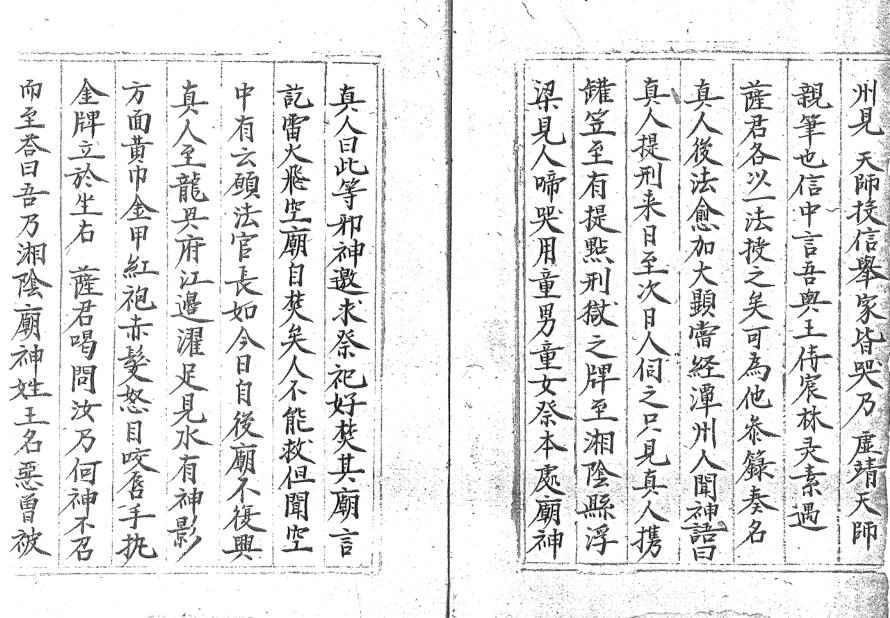 州見　天師投信舉家皆哭乃　虛靖天師
親筆也信中言吾與王侍宸林灵素遇
薩君各以一法授之矣可為他叅籙奏名
真人後法愈加大顯嘗經潭州人聞神語曰
真人提刑来日至次日人伺之只見真人携
罐笠至有提點刑獄之牌至湘陰縣浮
梁見人啼哭用童男童女祭本處廟神
真人曰此等邪神邀求祭祀好焚其廟言
訖雷火飛空廟自焚矣人不能救但聞空
中有云願法官長如今日自後廟不復興
真人至龍興府江邊濯足見水有神影
方面黃巾金甲紅袍赤髮怒目咬唇手执
金牌立於坐右　薩君喝問汝乃何神不召
而至荅曰吾乃湘陰廟神姓王名惡曾被